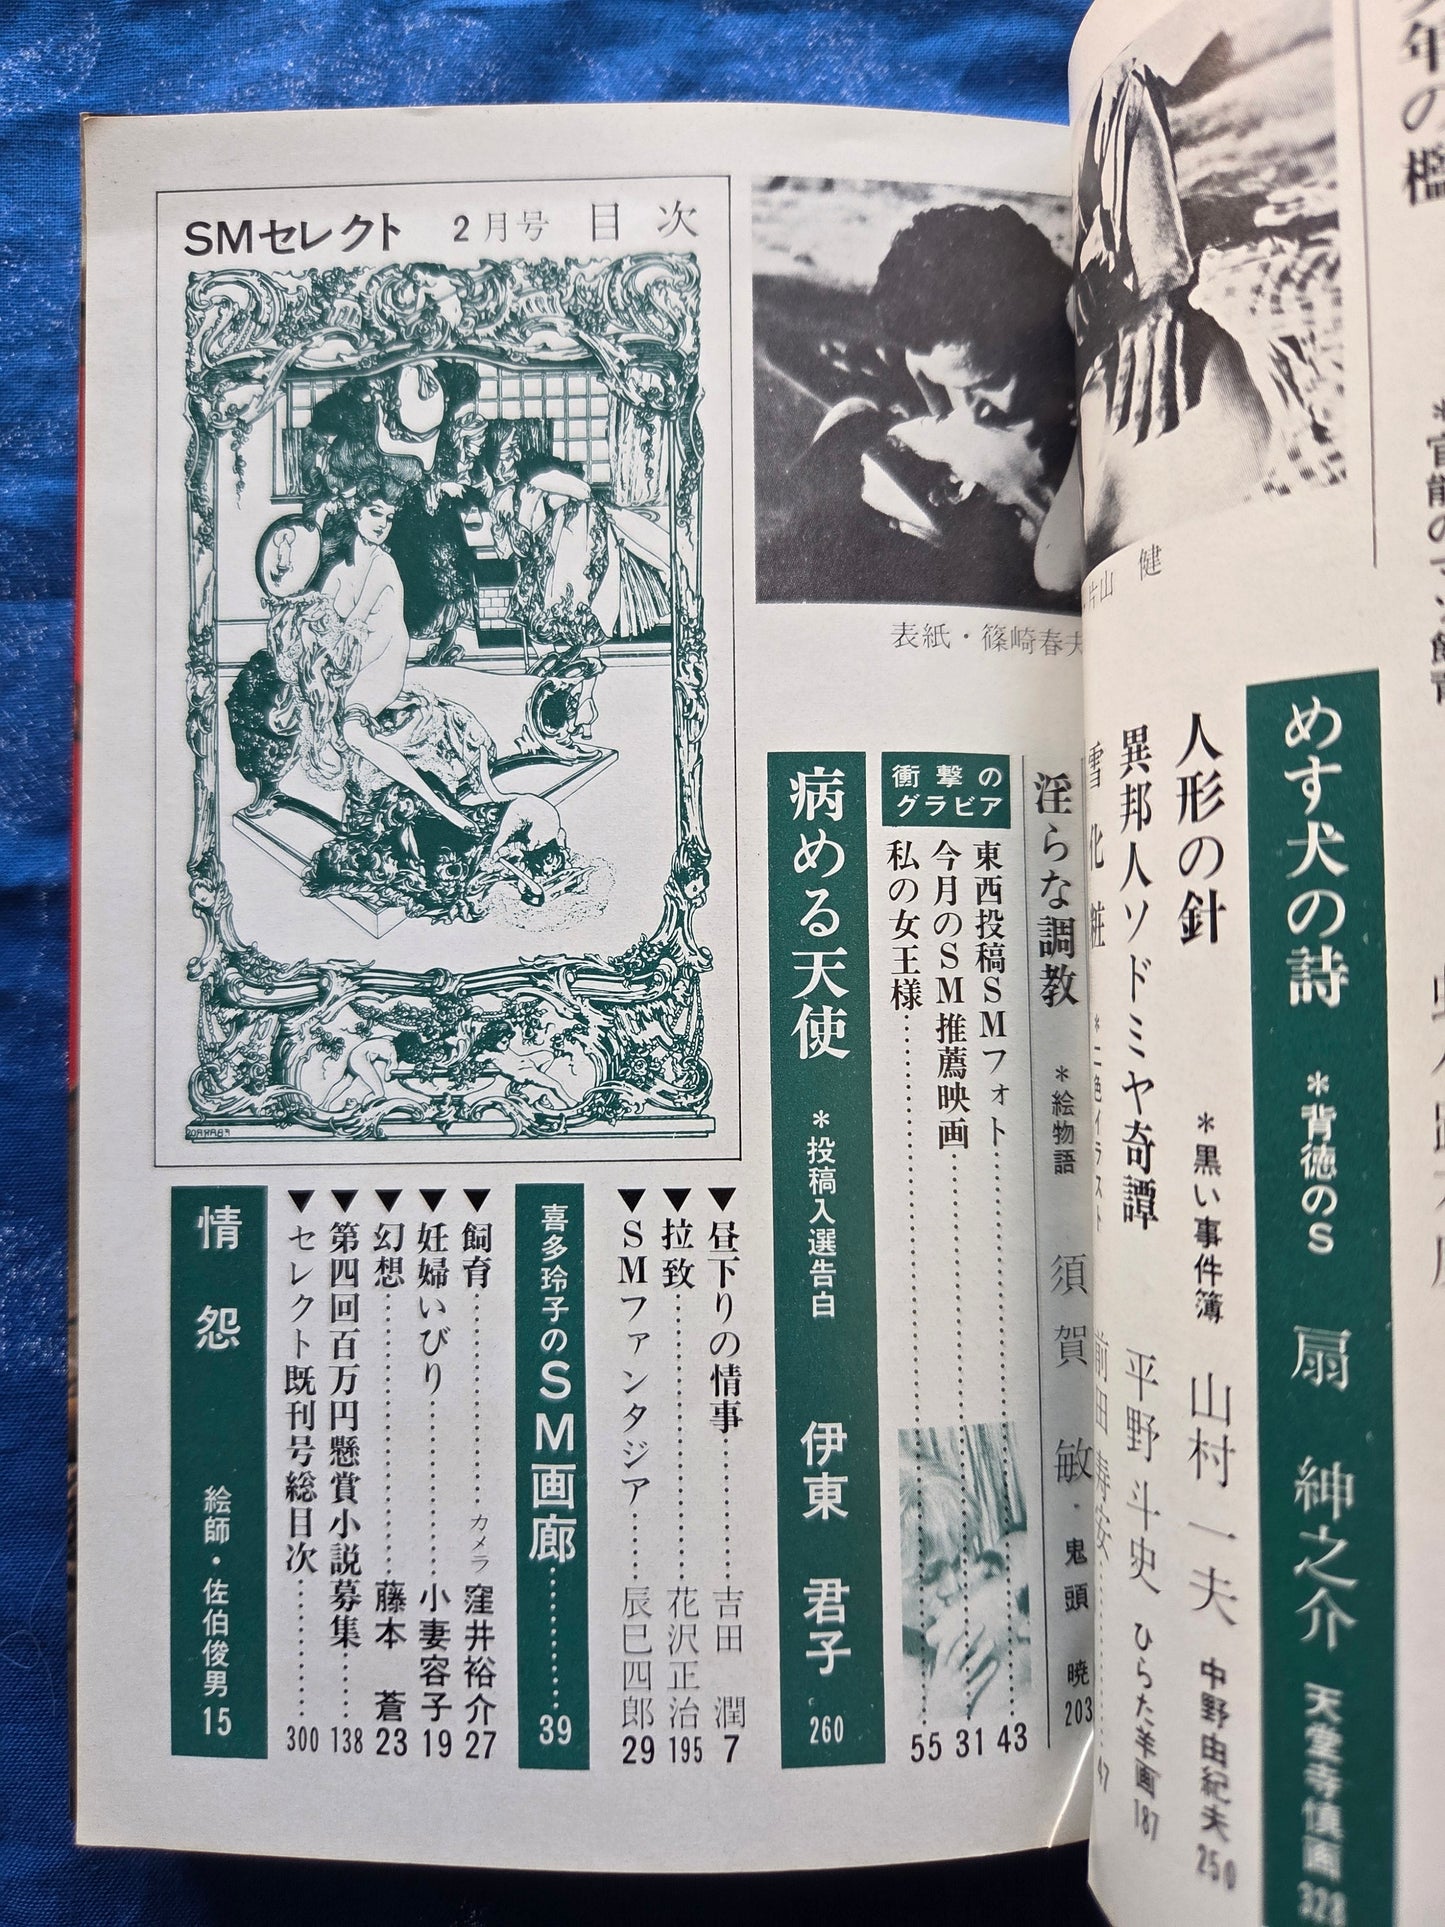 SMセレクト 2月号 目次
年の檻
めす犬の詩 *背徳のS 扇 紳之介 天堂寺慎画 328
人形の針 *黒い事件簿 山村一夫 中野由紀夫 250
異邦人ソドミヤ奇譚 平野斗史 ひらた羊画 187
雪化粧 *二色イラスト 前田寿安 47
片山 健
表紙・篠崎春夫
淫らな調教 *絵物語 須賀 敏・鬼頭 暁 203
衝撃の
グラビア
東西投稿SMフォト 43
今月のSM推薦映画 31
私の女王様 55
病める天使 *投稿入選告白 伊東 君子 260
▼昼下りの情事 吉田 潤 7
▼拉致 花沢正治 195
▼SMファンタジア 辰巳四郎 29
喜多玲子のSM画廊 39
▼飼育 カメラ 窪井裕介 27
▼妊婦いびり 小妻容子 19
▼幻想 藤本 蒼 23
▼第四回百万円懸賞小説募集 138
▼セレクト既刊号総目次 300
情怨 絵師・佐伯俊男 15